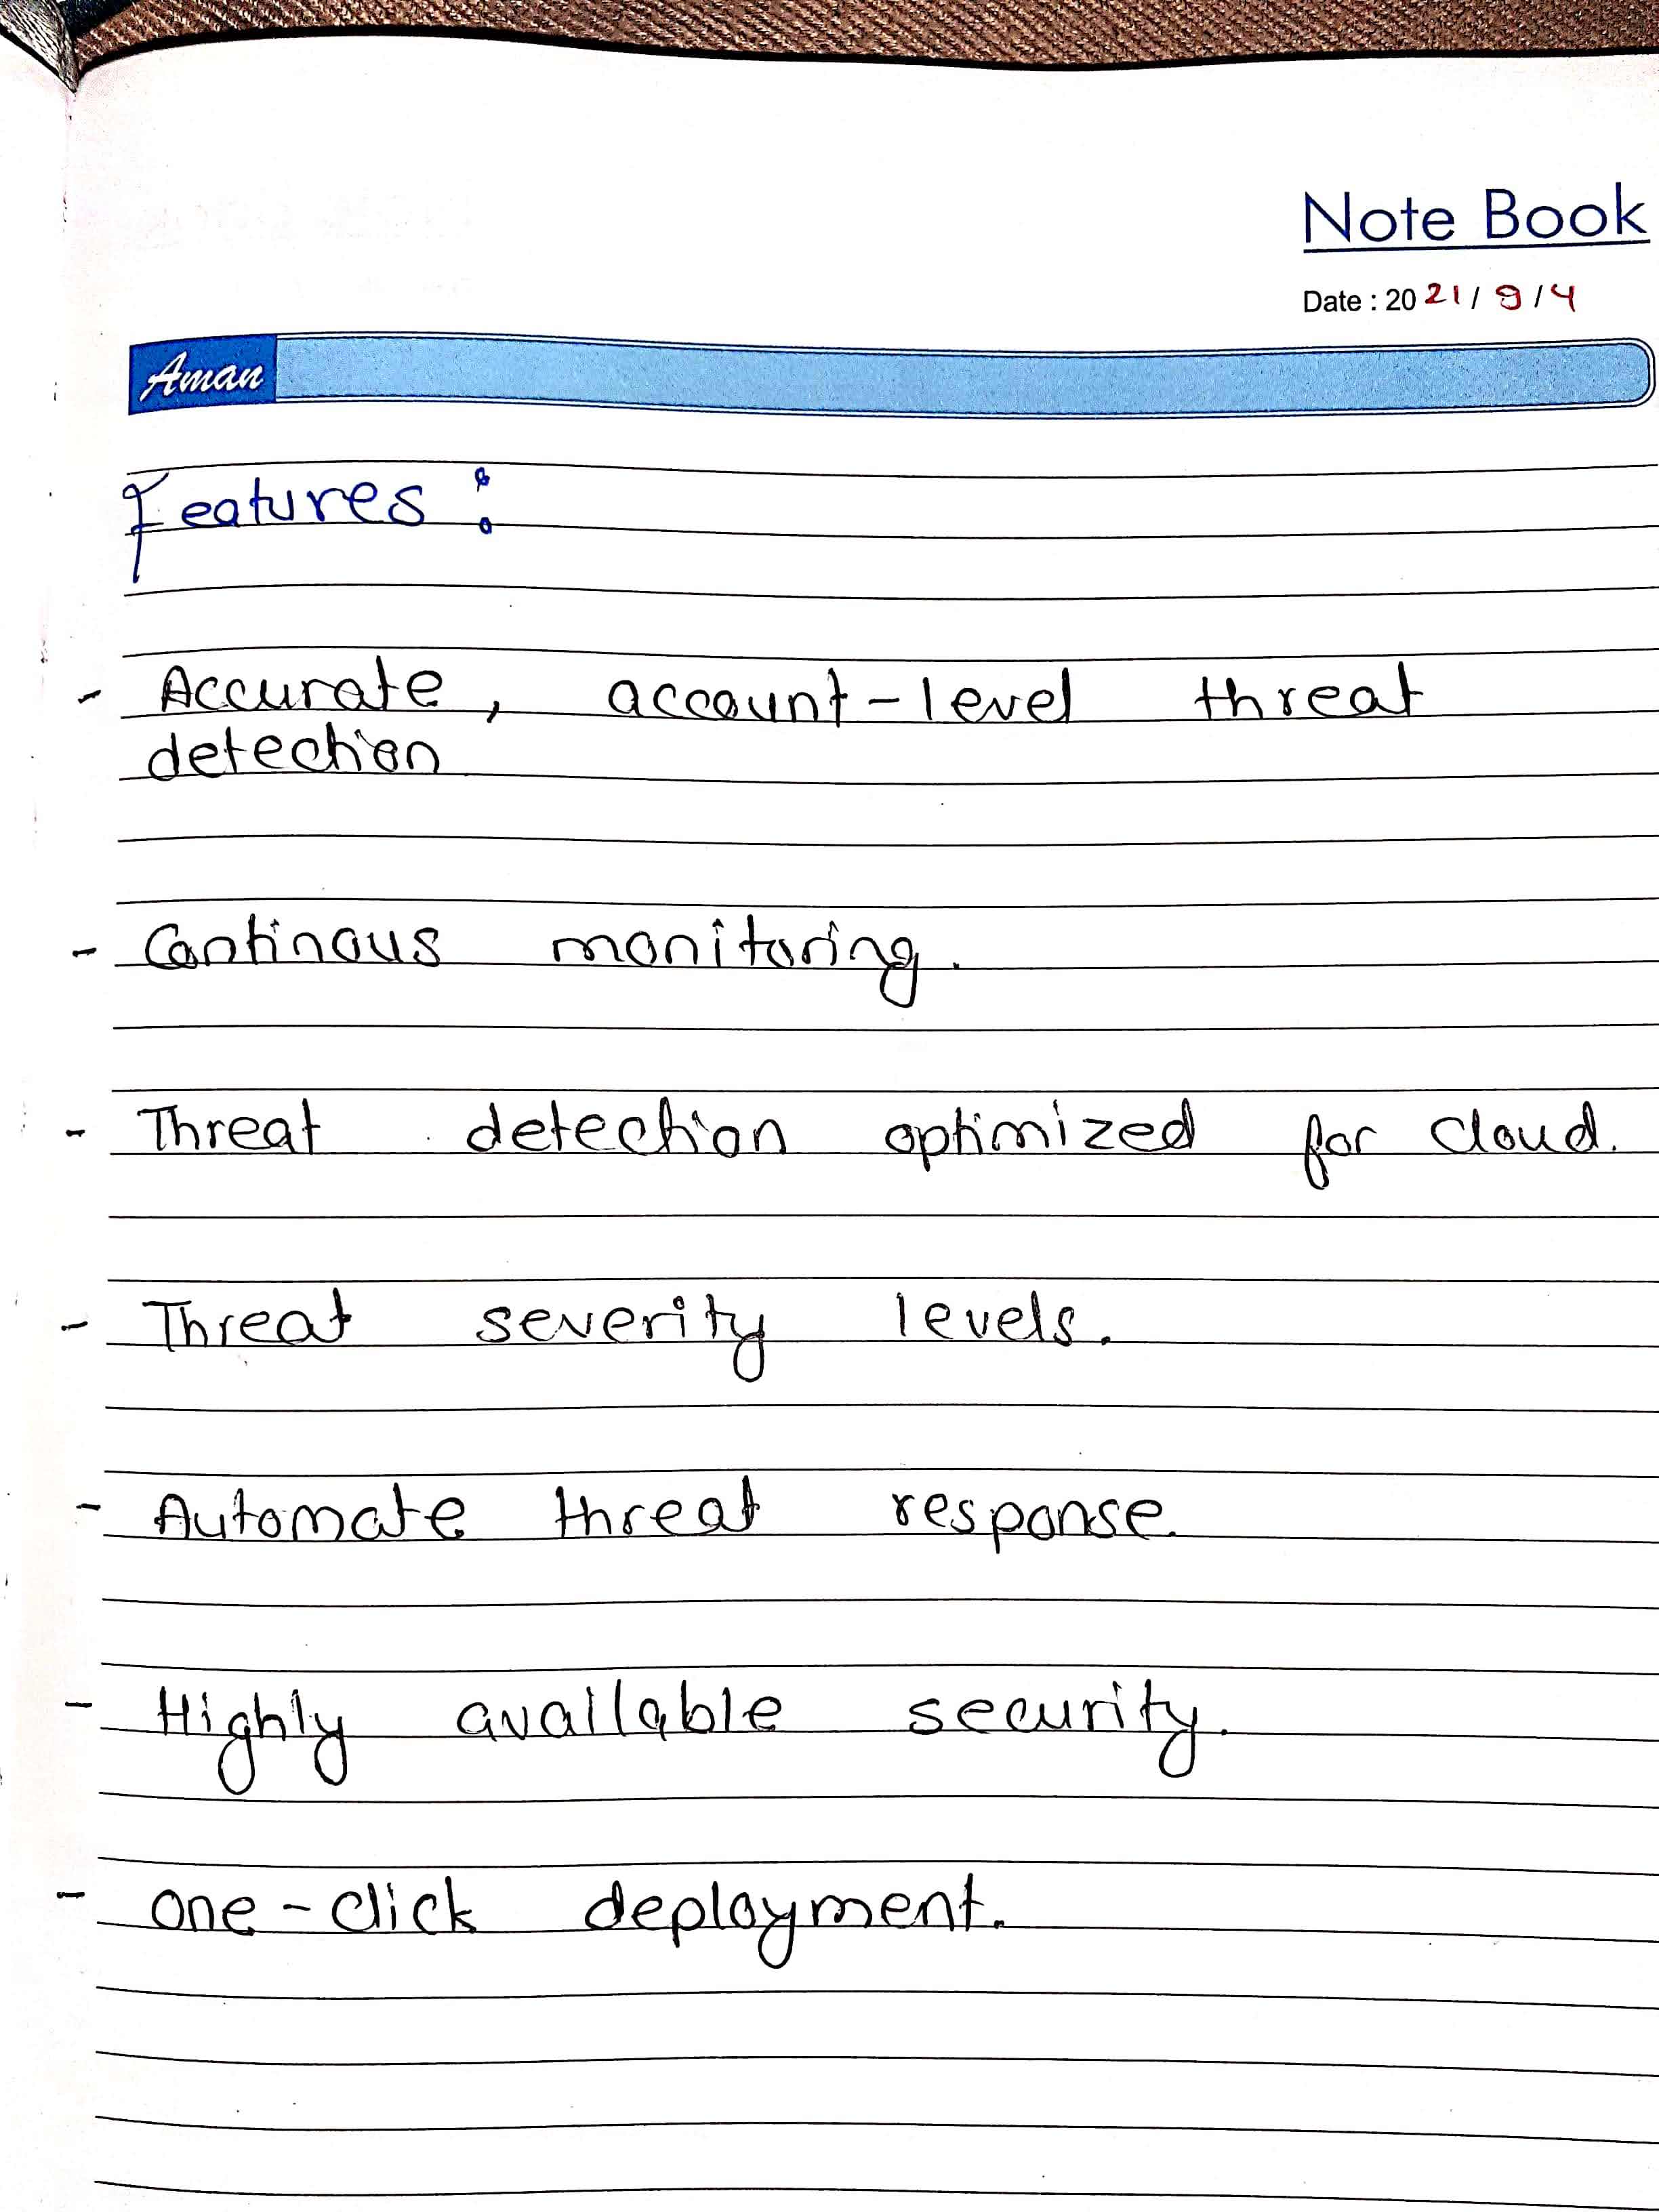 Note Book
Date : 2021/9/4
Aman
Features :
- Accurate, account-level threat
detection
- Continous monitoring.
- Threat detection optimized for cloud.
- Threat severity levels.
- Automate threat response.
- Highly available security.
- one-click deployment.